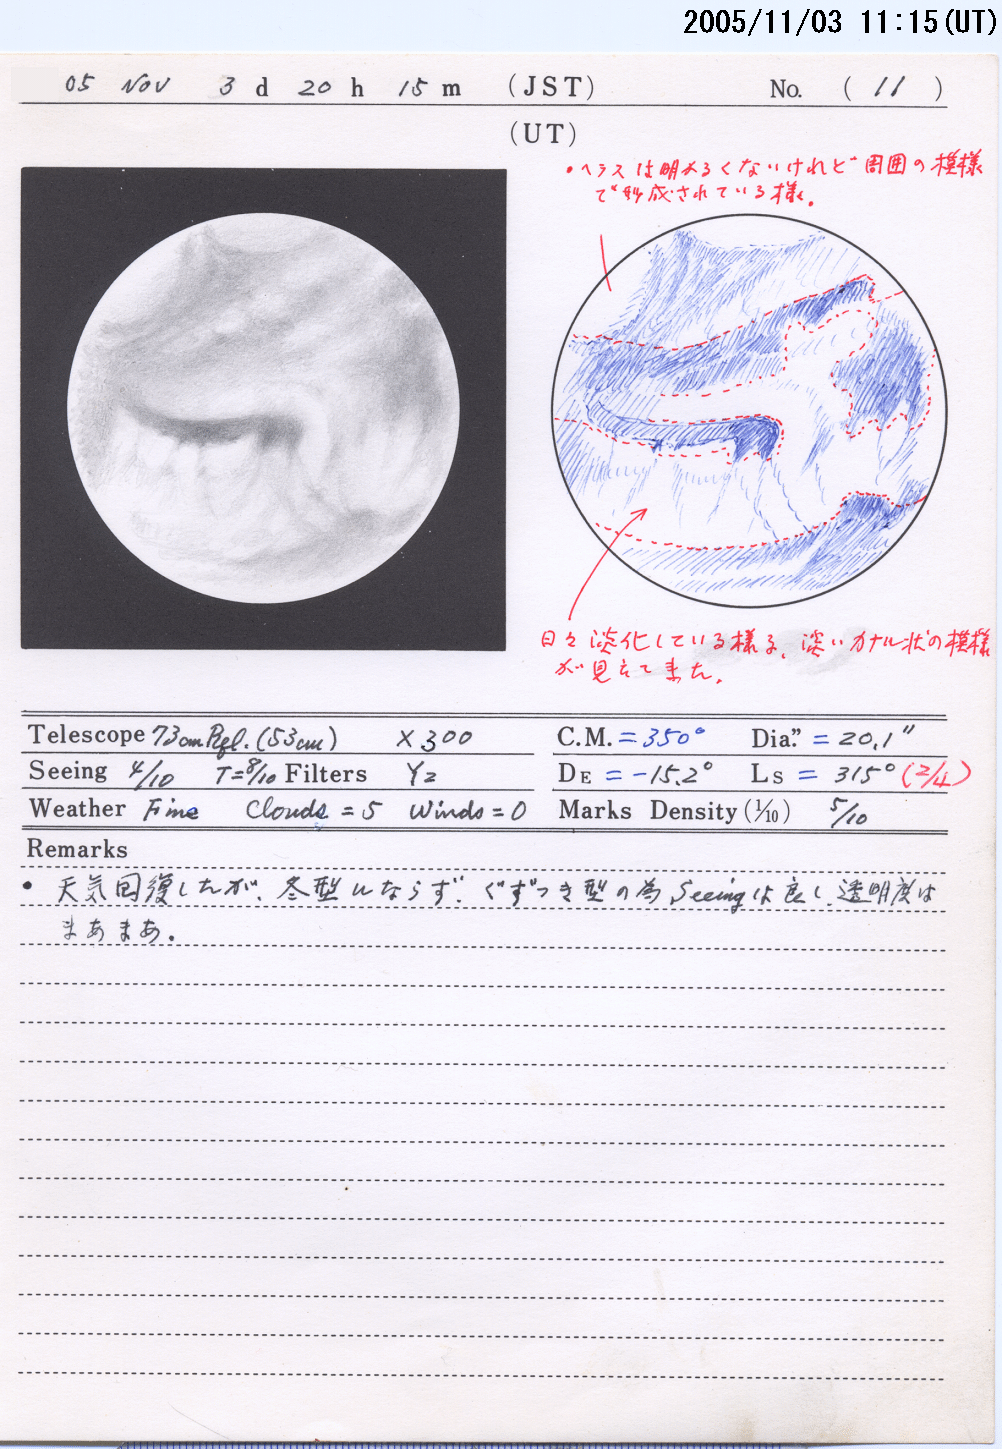 2005/11/03 11:15(UT)
05 Nov 3 d 20 h 15 m (JST) No. ( 11 )
(UT)
・ヘラスは明かるくないけれど周囲の模様
で形成されている様。
日々淡化している様る、淡いカナル状の模様
が見えて来た。
Telescope 73cm Refl. (53cm) ×300
Seeing 4/10 T=8/10 Filters Y2
Weather Fine Clouds =5 Winds =0
C.M. = 350° Dia." = 20.1"
DE = -15.2° Ls = 315° (2/4)
Marks Density (1/10) 5/10
Remarks
• 天気回復したが、冬型にならず、ぐずつき型の為、Seeingは良し、透明度は
まあまあ。